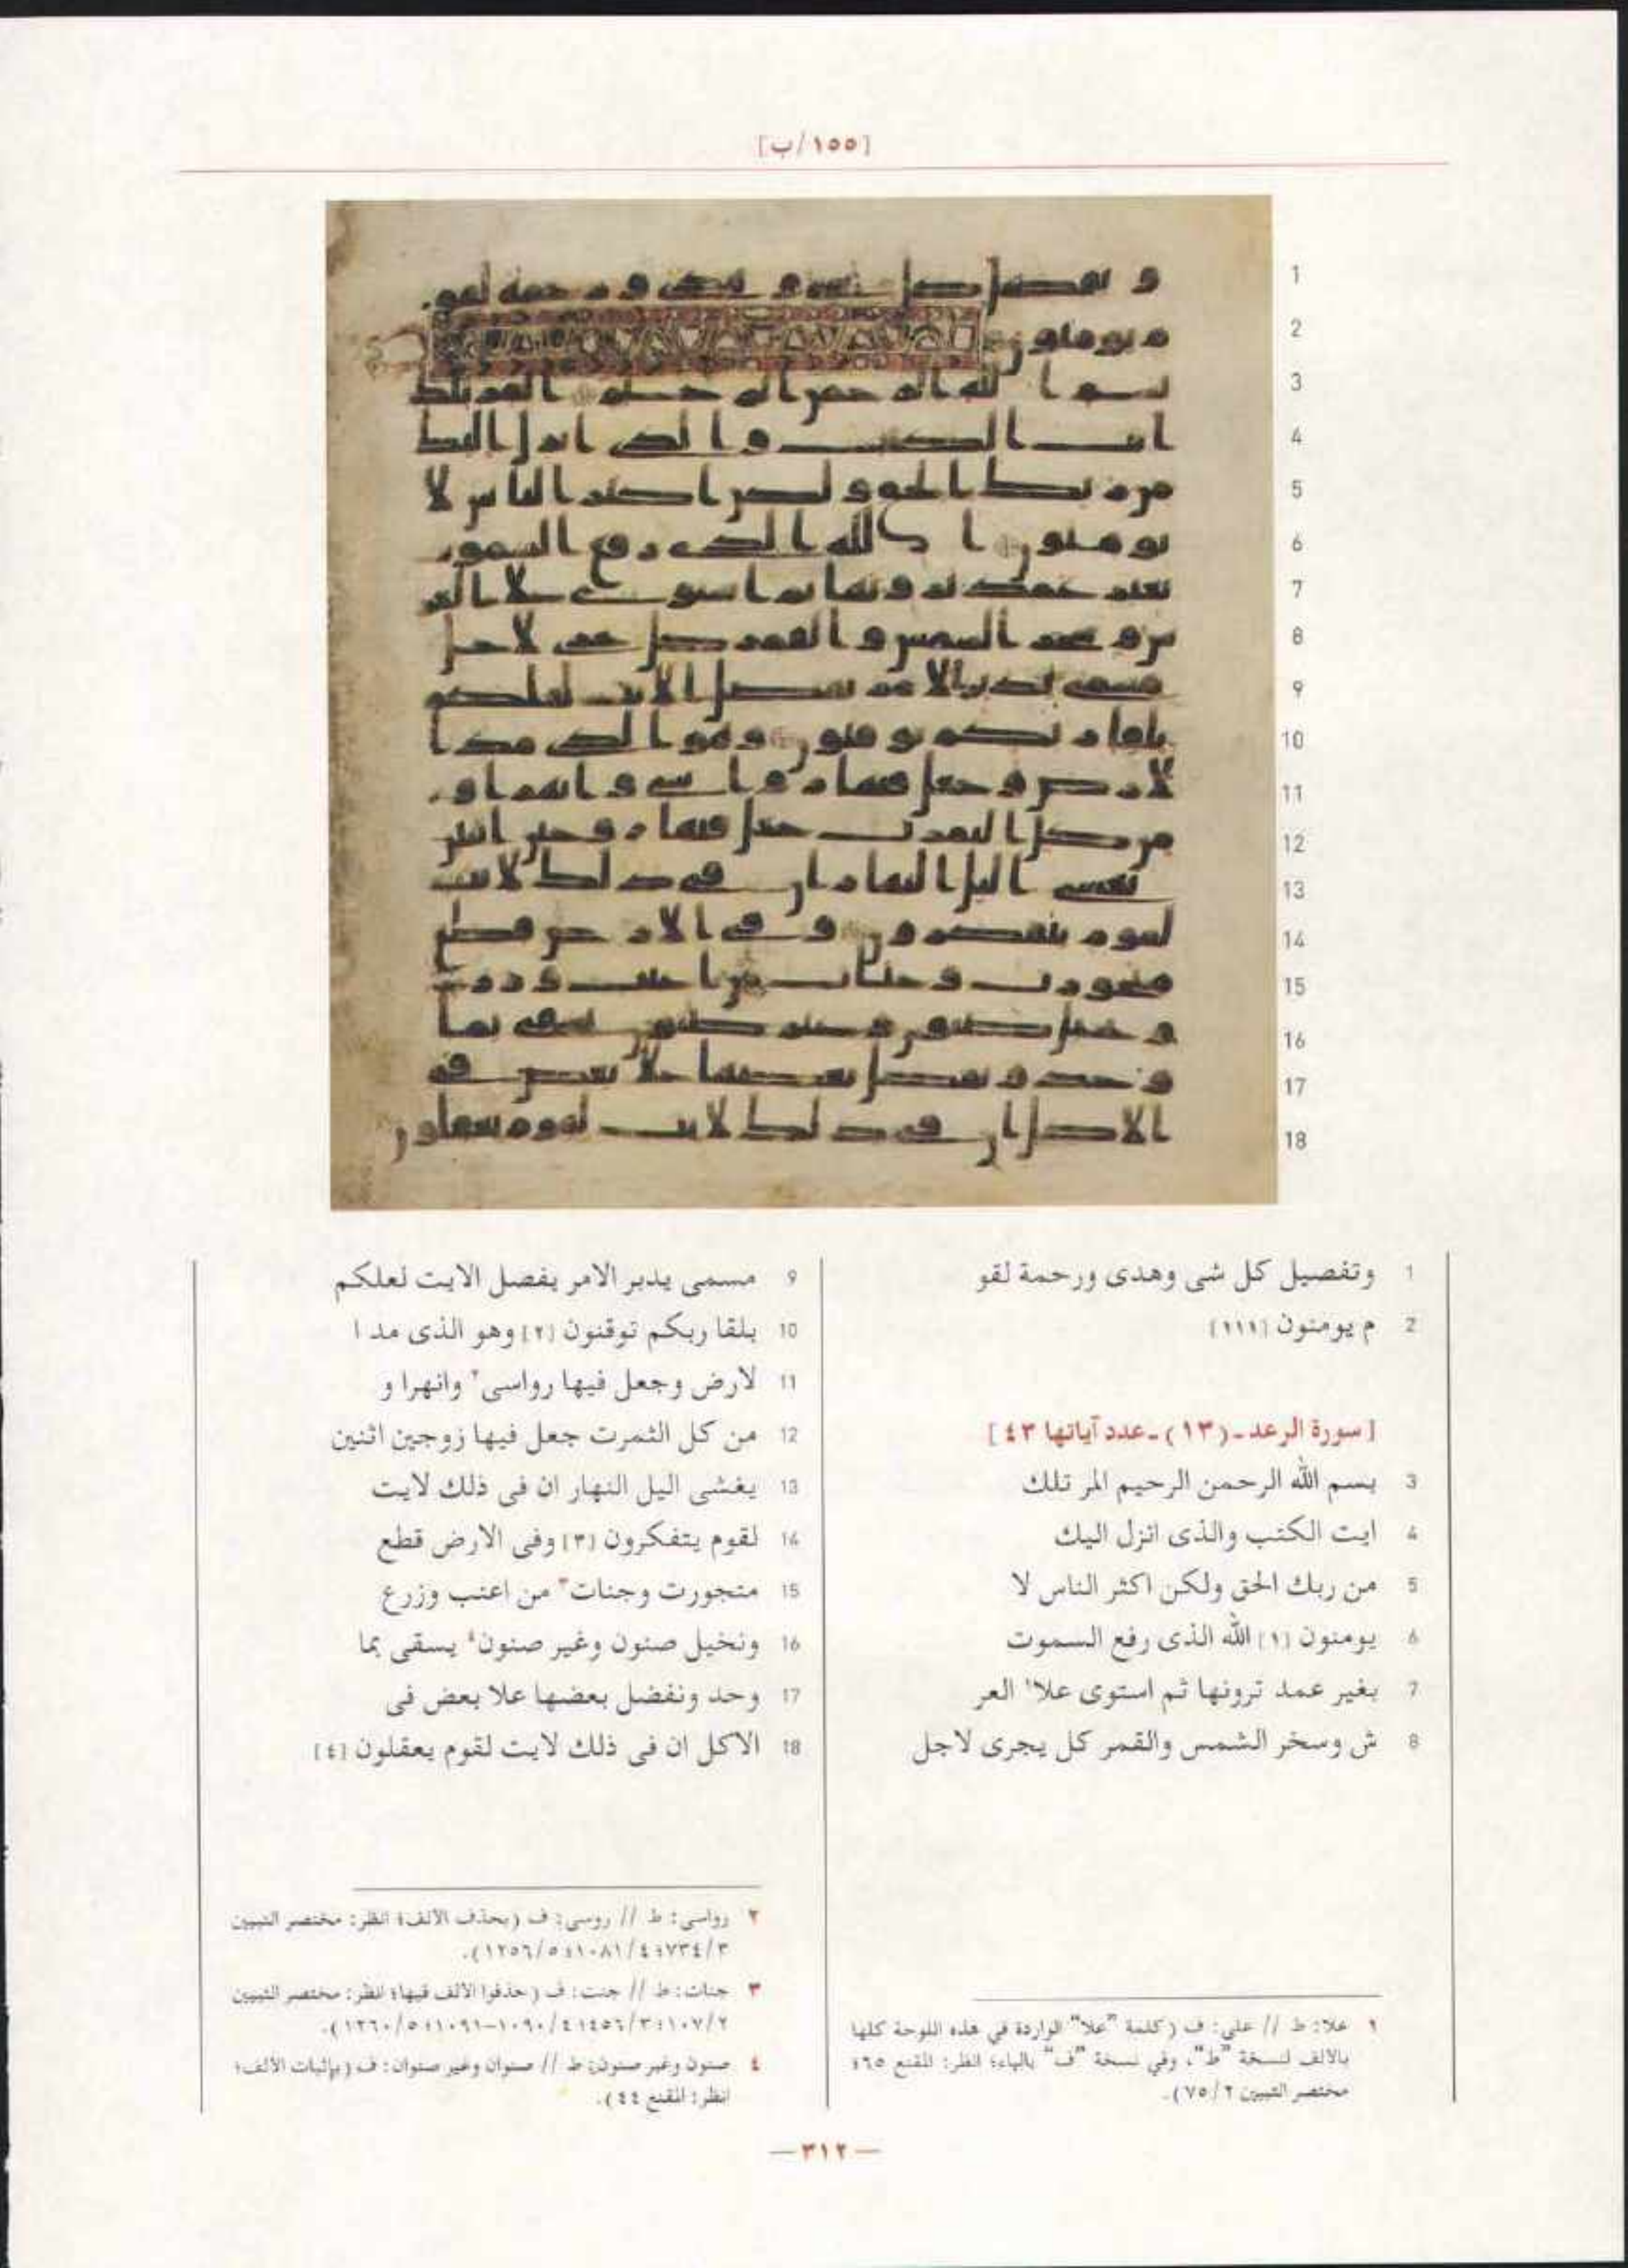 [١٥٥/ب]
1 وتفصيل كل شى وهدى ورحمة لقو
2 م يومنون [١١١]
[سورة الرعد-(١٣)-عدد آياتها ٤٣]
3 بسم الله الرحمن الرحيم المر تلك
4 ايت الكتب والذى انزل اليك
5 من ربك الحق ولكن اكثر الناس لا
6 يومنون [١] الله الذى رفع السموت
7 بغير عمد ترونها ثم استوى علا١ العر
8 ش وسخر الشمس والقمر كل يجرى لاجل
9 مسمى يدبر الامر يفصل الايت لعلكم
10 بلقا ربكم توقنون [٢] وهو الذى مد ا
11 لارض وجعل فيها رواسى٢ وانهرا و
12 من كل الثمرت جعل فيها زوجين اثنين
13 يغشى اليل النهار ان فى ذلك لايت
14 لقوم يتفكرون [٣] وفى الارض قطع
15 متجورت وجنات٣ من اعنب وزرع
16 ونخيل صنون وغير صنون٤ يسقى بما
17 وحد ونفضل بعضها علا بعض فى
18 الاكل ان فى ذلك لايت لقوم يعقلون [٤]
١ علا: ط // على: ف (كلمة "علا" الواردة في هذه اللوحة كلها
بالألف لنسخة "ط"، وفي نسخة "ف" بالياء؛ انظر: المقنع ٦٥؛
مختصر التبيين ٧٥/٢).
٢ رواسى: ط // روسى: ف (بحذف الألف؛ انظر: مختصر التبيين
٧٣٤/٣؛ ١٠٨١/٤؛ ١٢٥٦/٥).
٣ جنات: ط // جنت: ف (حذفوا الألف فيها؛ انظر: مختصر التبيين
١٠٧/٢؛ ٤٥٦/٣؛ ١٠٩٠/٤-١٠٩١؛ ١٢٦٠/٥).
٤ صنون وغير صنون: ط // صنوان وغير صنوان: ف (بإثبات الألف؛
انظر: المقنع ٤٤).
—٣١٢—